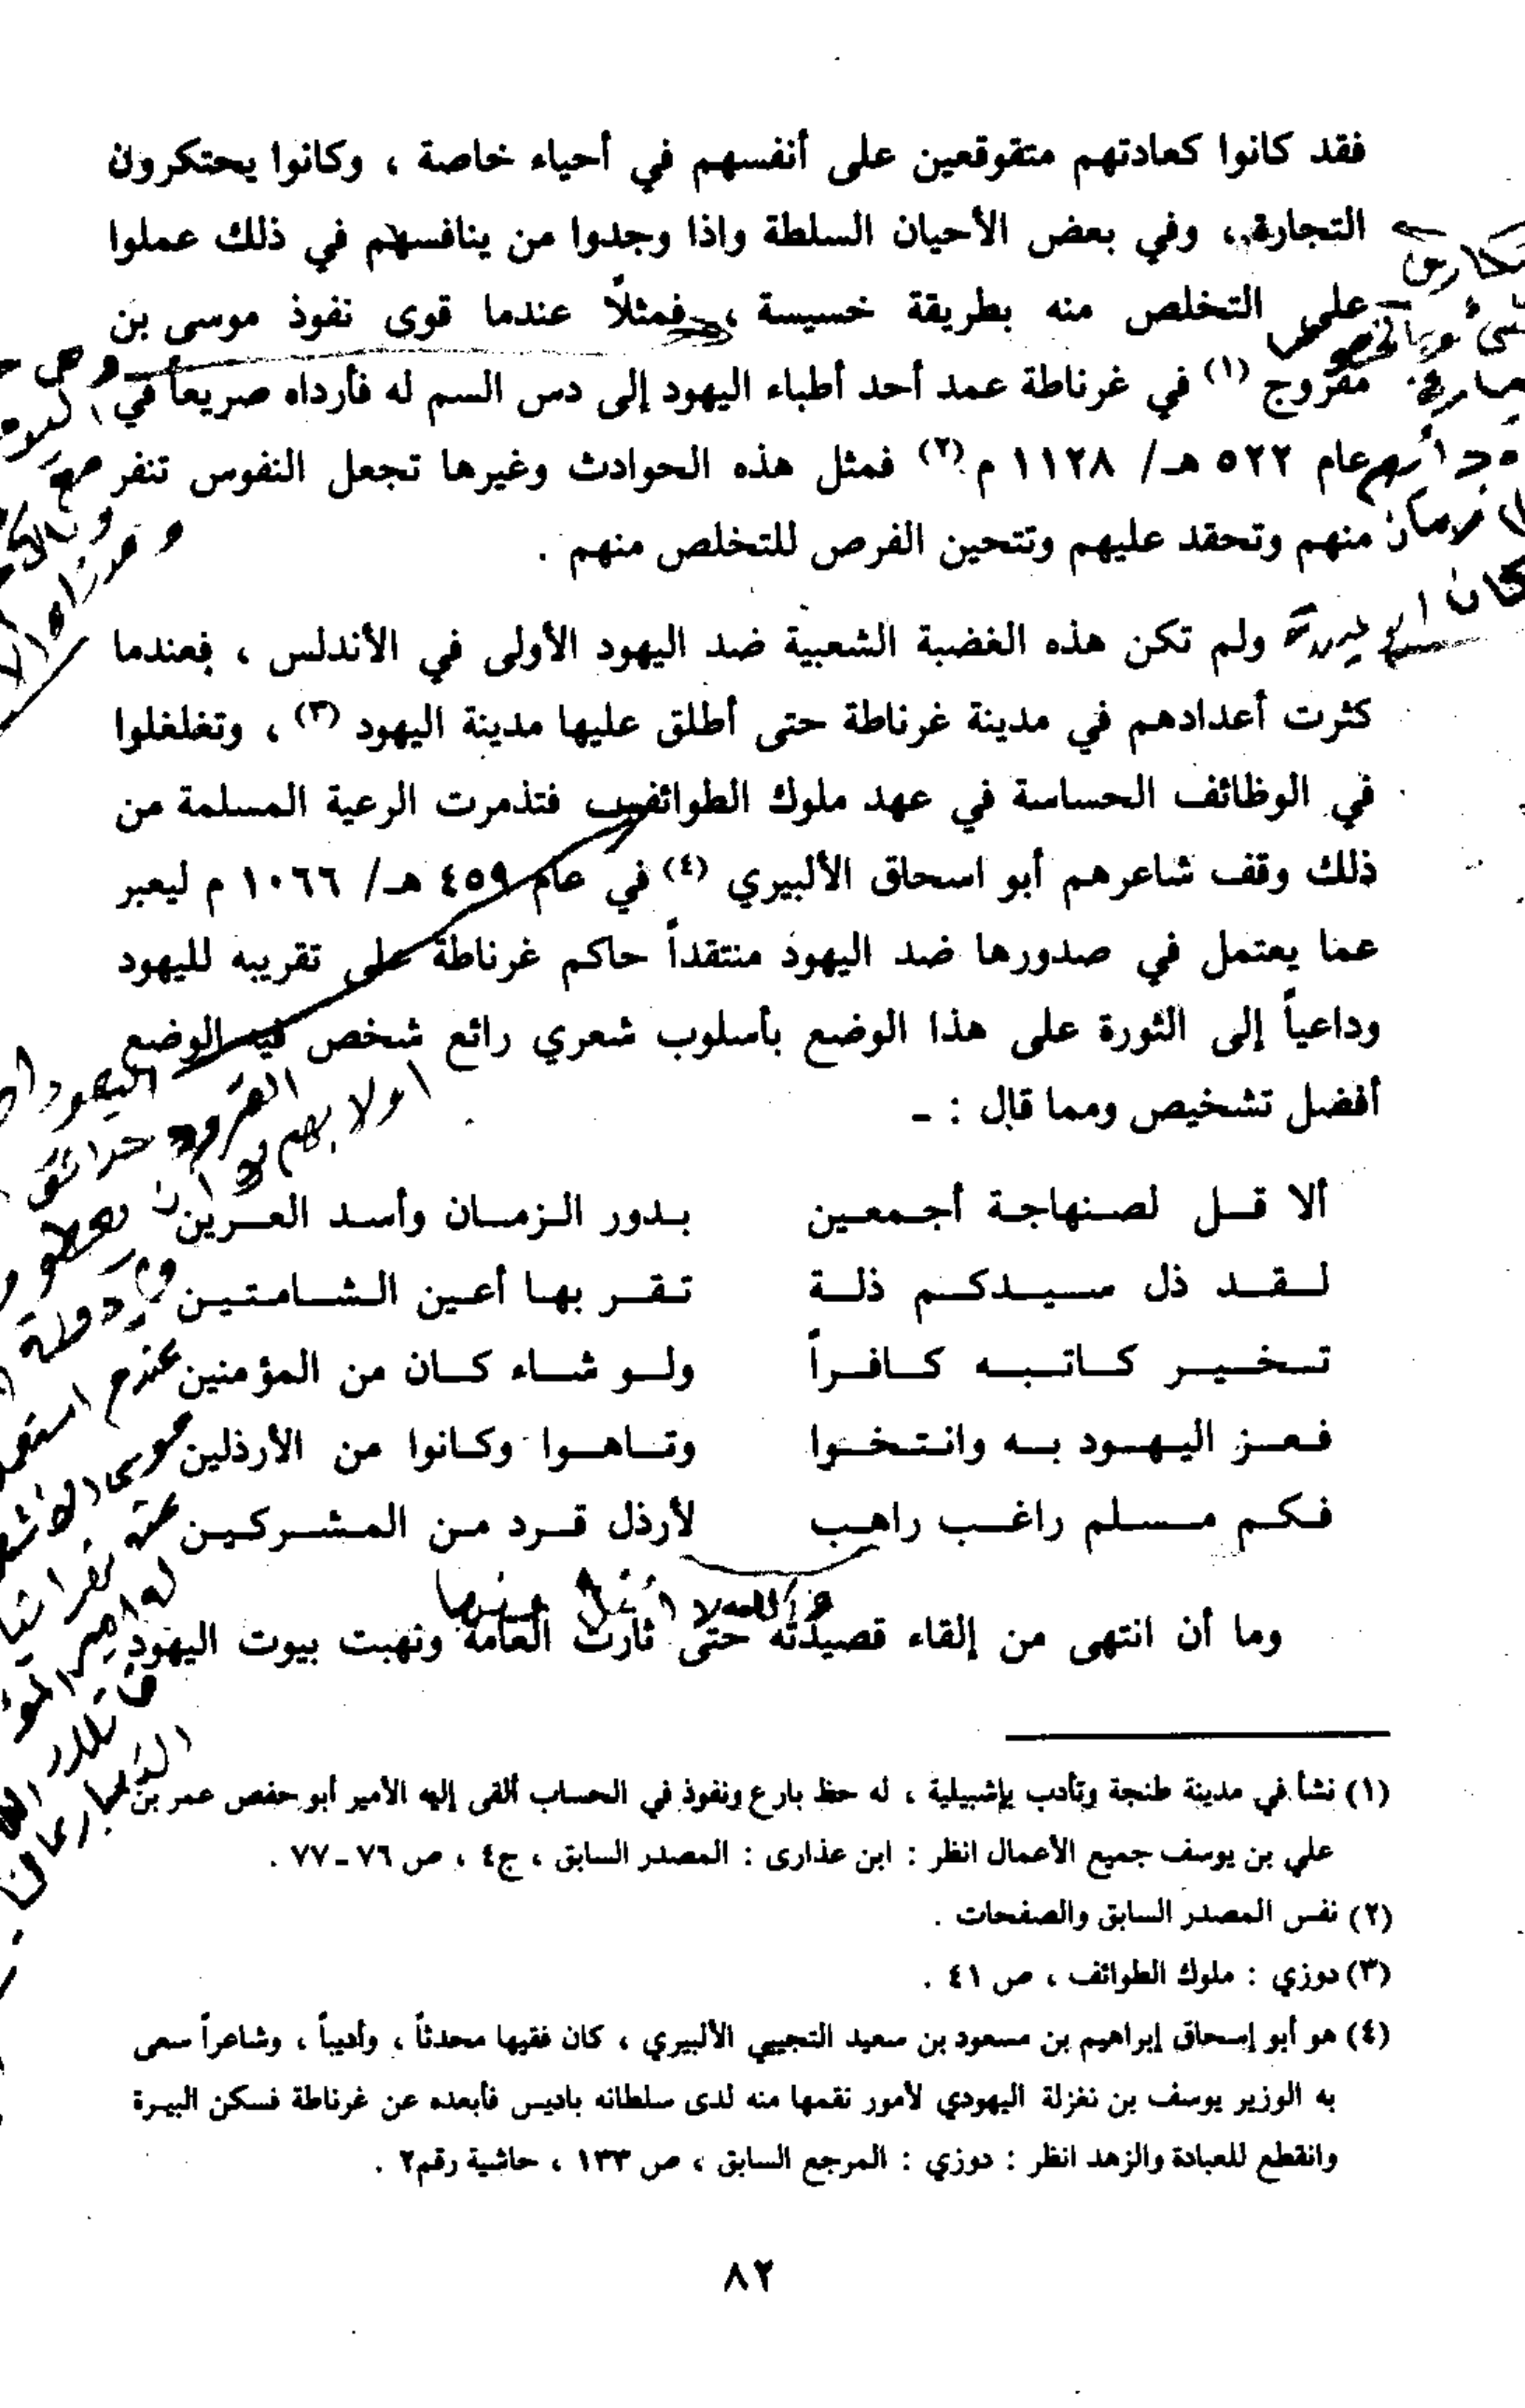 فقد كانوا كعادتهم متقوقعين على أنفسهم في أحياء خاصة ، وكانوا يحتكرون
التجارة ، وفي بعض الأحيان السلطة واذا وجدوا من ينافسهم في ذلك عملوا
على التخلص منه بطريقة خسيسة ، فمثلاً عندما قوى نفوذ موسى بن
مفروج (١) في غرناطة عمد أحد أطباء اليهود إلى دس السم له فأرداه صريعاً في
عام ٥٢٢ هـ/ ١١٢٨ م (٢) فمثل هذه الحوادث وغيرها تجعل النفوس تنفر
منهم وتحقد عليهم وتتحين الفرص للتخلص منهم .
ولم تكن هذه الغضبة الشعبية ضد اليهود الأولى في الأندلس ، فعندما
كثرت أعدادهم في مدينة غرناطة حتى أطلق عليها مدينة اليهود (٣) ، وتغلغلوا
في الوظائف الحساسة في عهد ملوك الطوائف فتذمرت الرعية المسلمة من
ذلك وقف شاعرهم أبو اسحاق الألبيري (٤) في عام ٤٥٩ هـ/ ١٠٦٦ م ليعبر
عما يعتمل في صدورها ضد اليهود منتقداً حاكم غرناطة على تقريبه لليهود
وداعياً إلى الثورة على هذا الوضع بأسلوب شعري رائع شخص فيه الوضع
أفضل تشخيص ومما قال : -
ألا قل لصنهاجة أجمعين بدور الزمان وأسد العرين
لقد ذل سيدكم ذلة تقر بها أعين الشامتين
تخير كاتبه كافراً ولو شاء كان من المؤمنين
فعز اليهود به وانتخوا وتاهوا وكانوا من الأرذلين
فكم مسلم راغب راهب لأرذل قرد من المشركين
وما أن انتهى من إلقاء قصيدته حتى ثارت العامة ونهبت بيوت اليهود
(١) نشأ في مدينة طنجة وتأدب بإشبيلية ، له حظ بارع ونفوذ في الحساب ألقى إليه الأمير أبو حفص عمر بن
علي بن يوسف جميع الأعمال انظر : ابن عذارى : المصدر السابق ، ج٤ ، ص ٧٦ـ٧٧ .
(٢) نفس المصدر السابق والصفحات .
(٣) دوزي : ملوك الطوائف ، ص ٤١ .
(٤) هو أبو إسحاق إبراهيم بن مسعود بن سعيد التجيبي الألبيري ، كان فقيها محدثاً ، وأديباً ، وشاعراً سعى
به الوزير يوسف بن نغزلة اليهودي لأمور نقمها منه لدى سلطانه باديس فأبعده عن غرناطة فسكن البيرة
وانقطع للعبادة والزهد انظر : دوزي : المرجع السابق ، ص ١٣٣ ، حاشية رقم٢ .
٨٢